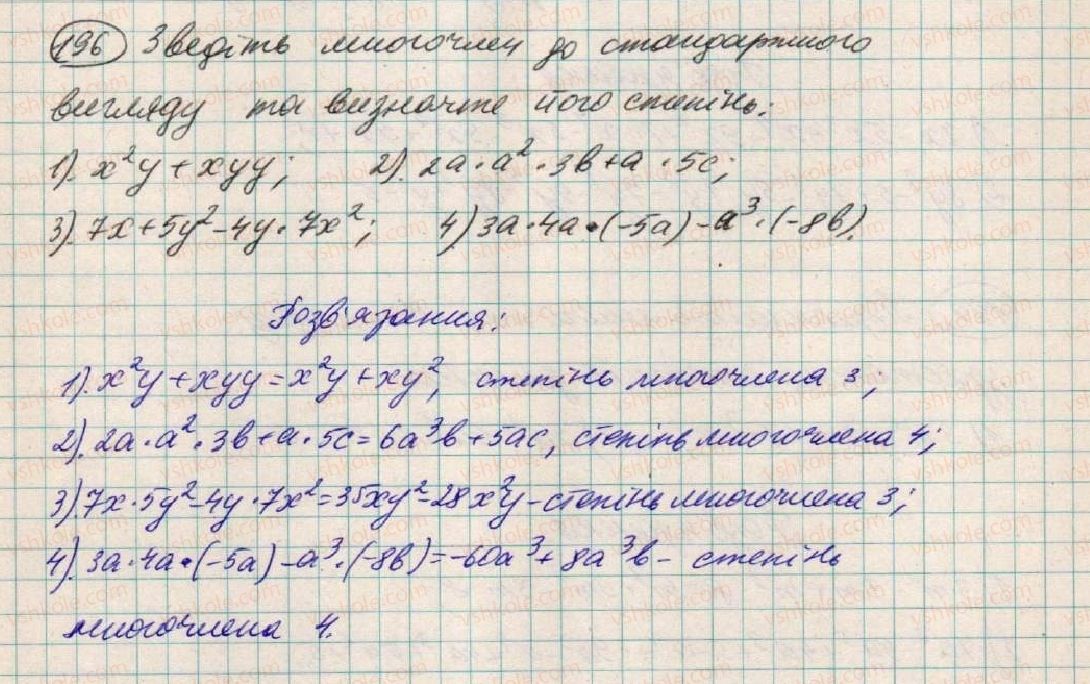 196 Зведіть многочлен до стандартного
вигляду та визначте його степінь:
1). x²y + xyy; 2). 2a · a² · 3b + a · 5c;
3). 7x + 5y² - 4y · 7x²; 4) 3a · 4a · (-5a) - a³ · (-8b).
Розв'язання:
1). x²y + xyy = x²y + xy², степінь многочлена 3;
2). 2a · a² · 3b + a · 5c = 6a³b + 5ac, степінь многочлена 4;
3) 7x · 5y² - 4y · 7x² = 35xy² - 28x²y - степінь многочлена 3;
4). 3a · 4a · (-5a) - a³ · (-8b) = -60a³ + 8a³b - степінь
многочлена 4.